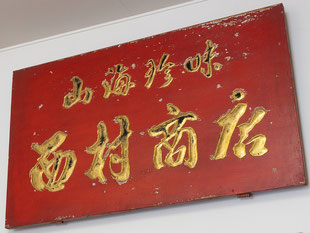 山海珍味
西村商店